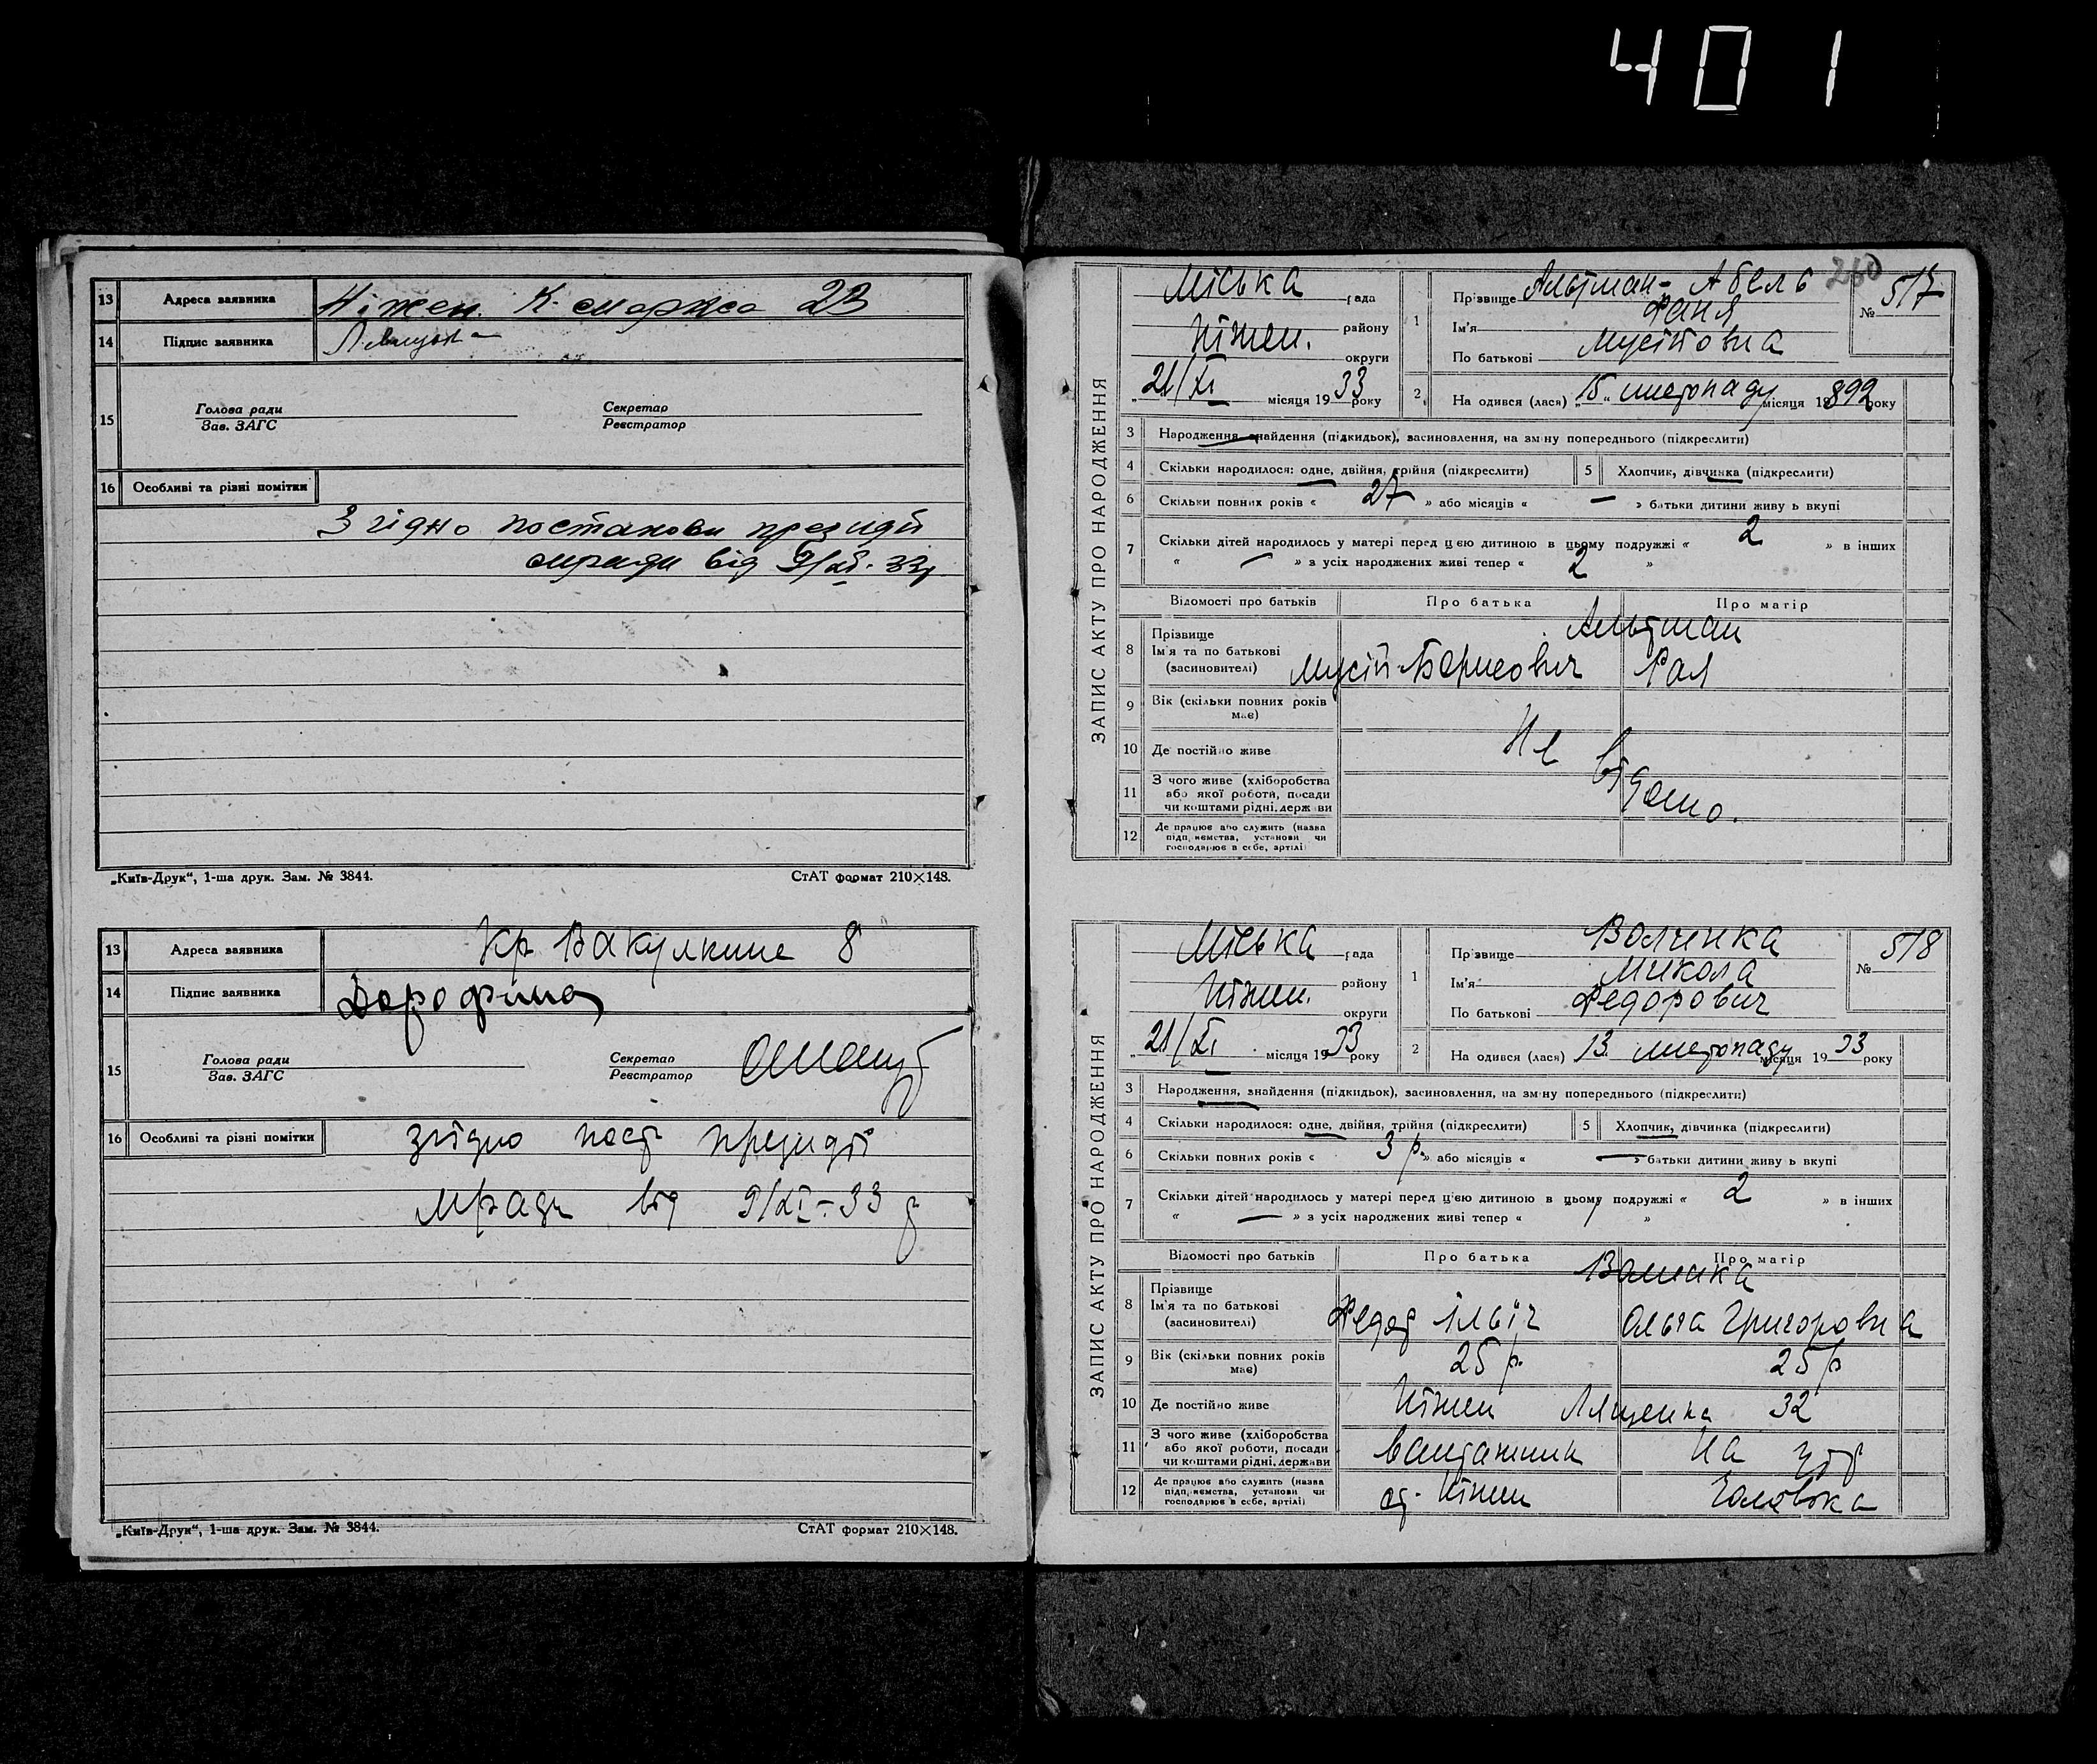 401
13 Адреса заявника Ніжен. К. Маркса 23
14 Підпис заявника
15 Голова ради Секретар
Зав. ЗАГС Реєстратор
16 Особливі та різні помітки
Згідно постанови президії
міради від 9/XI-33р
„Київ-Друк“, 1-ша друк. Зам. № 3844. СтАТ формат 210×148.
13 Адреса заявника Кр Вакулкине 8
14 Підпис заявника
15 Голова ради Секретар
Зав. ЗАГС Реєстратор
16 Особливі та різні помітки згідно пост президії
мради від 9/XI-33 р
„Київ-Друк“, 1-ша друк. Зам. № 3844. СтАТ формат 210×148.
260
ЗАПИС АКТУ ПРО НАРОДЖЕННЯ
Міська рада
Ніжен. району
округи
„21/XI місяця 1933 року
1 Прізвище Альтман-Абель
Ім'я Фаня
По батькові Мусіївна
№ 517
2 На одився (лася) „15“ листопаду місяця 1892 року
3 Народження, знайдення (підкидьок), засиновлення, на зміну попереднього (підкреслити)
4 Скільки народилося: одне, двійня, трійня (підкреслити) 5 Хлопчик, дівчинка (підкреслити)
6 Скільки повних років « 27 » або місяців « — » батьки дитини живуть вкупі
7 Скільки дітей народилось у матері перед цією дитиною в цьому подружжі « 2 » в інших
« — » з усіх народжених живі тепер « 2 »
Відомості про батьків Про батька Про матір
8 Прізвище Альтман
Ім'я та по батькові
(засиновителі) Мусій Борисович Рая
9 Вік (скільки повних років має)
10 Де постійно живе Не відомо.
11 З чого живе (хліборобства
або якої роботи, посади
чи коштами рідні, держави
12 Де працює або служить (назва
підприємства, установи чи
господарює в себе, артілі)
ЗАПИС АКТУ ПРО НАРОДЖЕННЯ
Міська рада
Ніжен. району
округи
„21/XI місяця 1933 року
1 Прізвище Волченка
Ім'я Микола
По батькові Федорович
№ 518
2 На одився (лася) 13 листопаду місяця 1933 року
3 Народження, знайдення (підкидьок), засиновлення, на зміну попереднього (підкреслити)
4 Скільки народилося: одне, двійня, трійня (підкреслити) 5 Хлопчик, дівчинка (підкреслити)
6 Скільки повних років « 3 р. » або місяців « — » батьки дитини живуть вкупі
7 Скільки дітей народилось у матері перед цією дитиною в цьому подружжі « 2 » в інших
« — » з усіх народжених живі тепер « 1 »
Відомості про батьків Про батька Про матір
8 Прізвище
Ім'я та по батькові
(засиновителі) Федор Ільїч Ольга Григоровна
9 Вік (скільки повних років має) 25 р. 25 р
10 Де постійно живе Ніжен Лященка 32
11 З чого живе (хліборобства
або якої роботи, посади
чи коштами рідні, держави вантажник на утр
12 Де працює або служить (назва
підприємства, установи чи
господарює в себе, артілі) ст. Ніжен Чоловіка